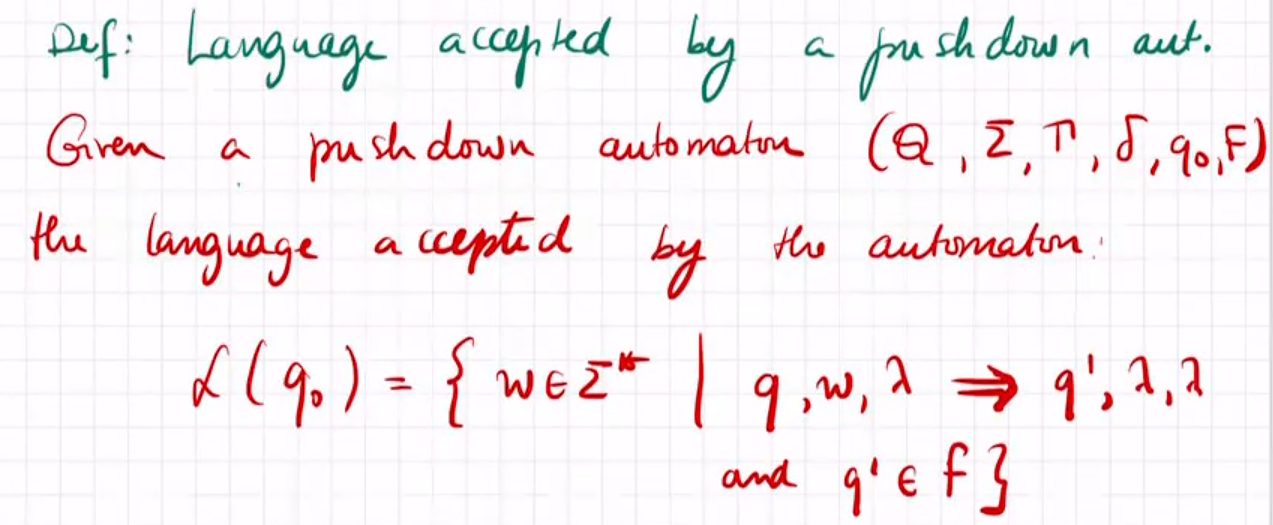 Def: Language accepted by a pushdown aut.
Given a pushdown automaton (Q, Σ, Γ, δ, q₀, F)
the language accepted by the automaton:
ℒ(q₀) = { w ∈ Σ* | q, w, λ ⇒ q', λ, λ
and q' ∈ F }